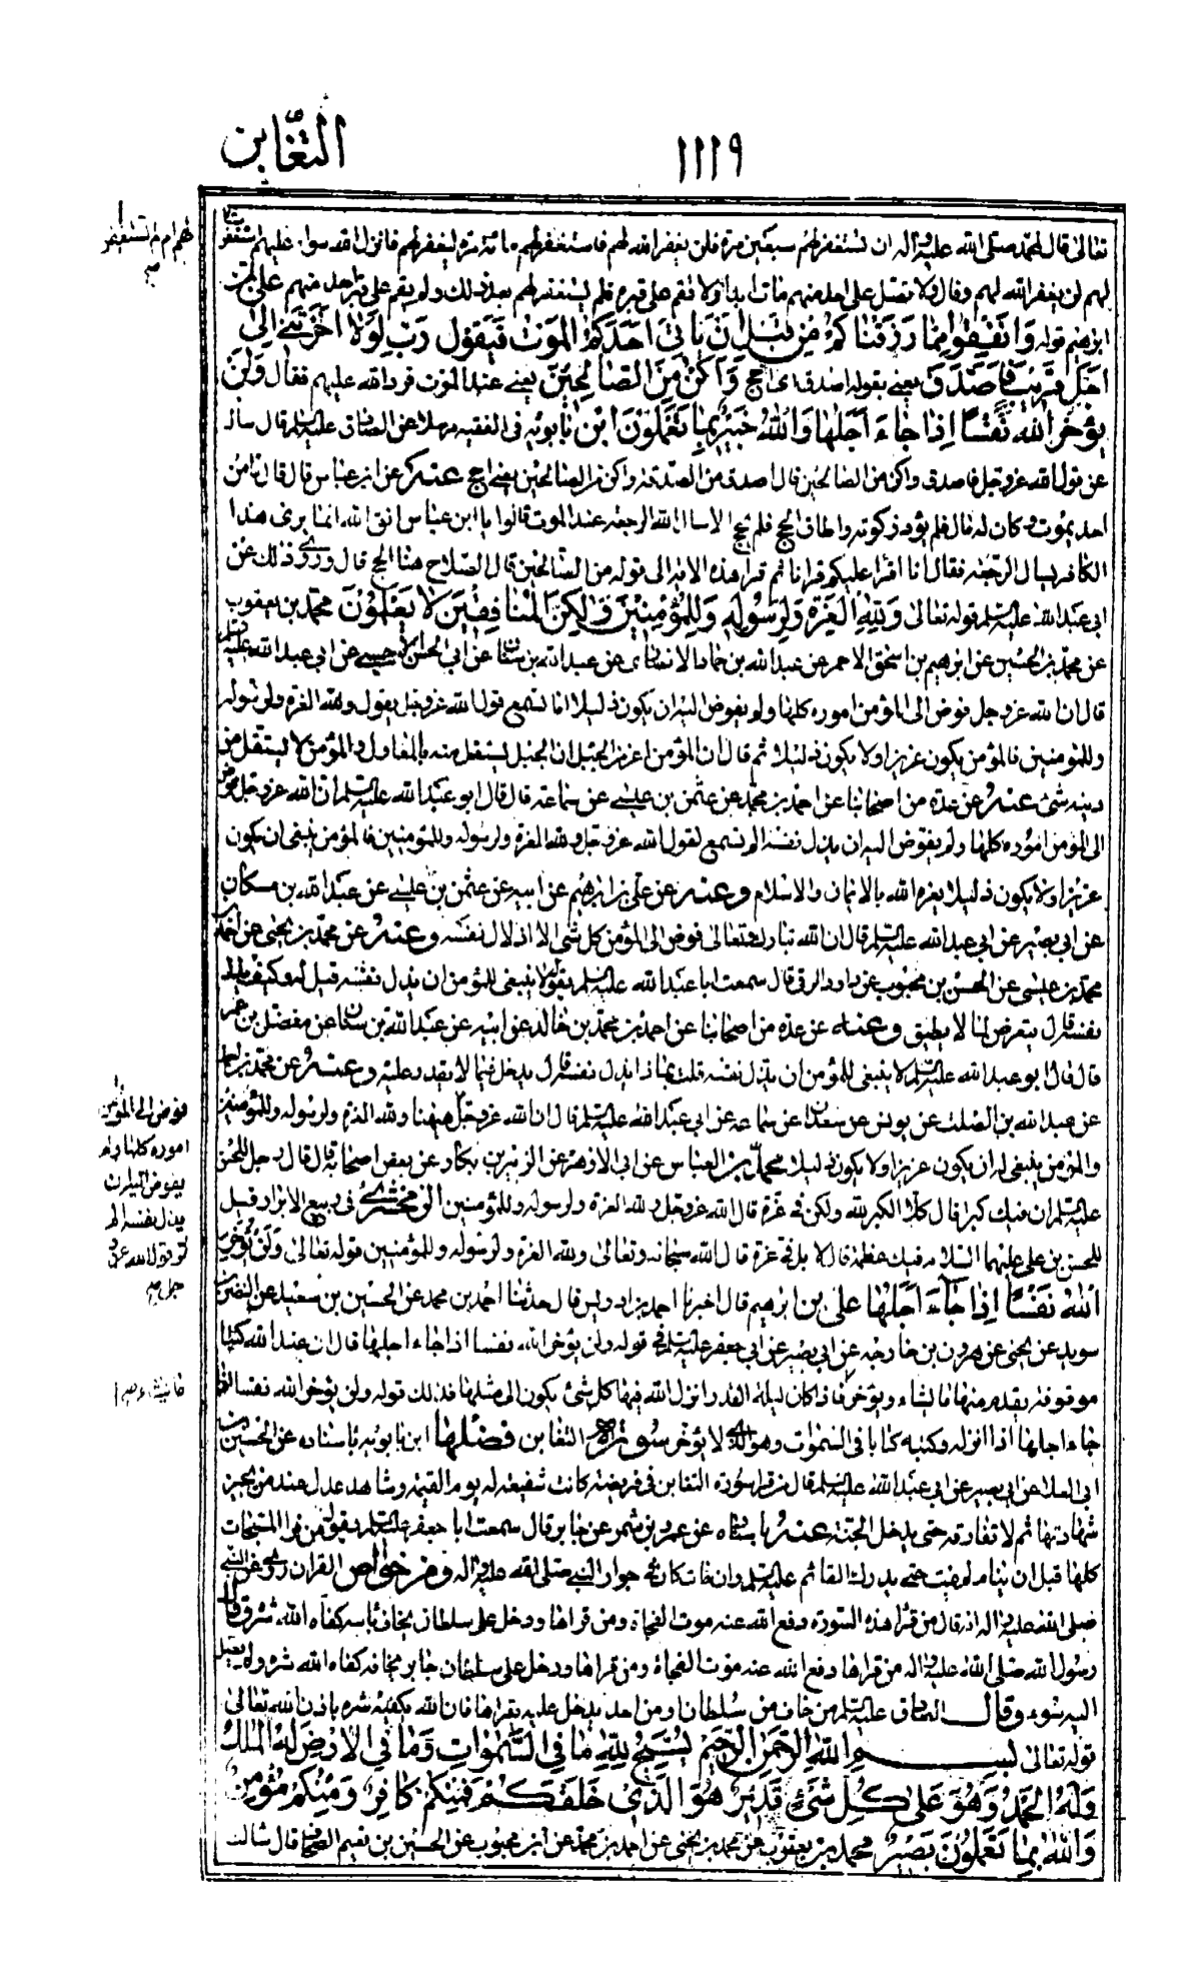 التغابن
١١١٩
تعالى قال لمحمد صلى الله عليه وآله ان تستغفر لهم سبعين مرة فلن يغفر الله لهم فاستغفر لهم مائة مرة ليغفر لهم فانزل الله سواء عليهم استغفرت
لهم لن يغفر الله لهم وقال ولا تصل على احد منهم مات ابدا ولا تقم على قبره فلم يستغفر لهم بعد ذلك ولم يقم على قبر احد منهم على بن
ابرهيم قوله وَاَنْفِقُوا مِمَّا رَزَقْنَاكُمْ مِنْ قَبْلِ اَنْ يَأتِيَ اَحَدَكُمُ المَوْتُ فَيَقُولَ رَبِّ لَوْلَا اَخَّرْتَنِي اِلى
اَجَلٍ قَرِيبٍ فَاَصَّدَّقَ يعني بقوله اصدق اى احج وَاَكُنْ مِنَ الصَّالِحِينَ يعنى عند الموت فرد الله عليهم فقال وَلَنْ
يُؤَخِّرَ اللهُ نَفْسًا اِذَا جَاءَ اَجَلُهَا وَاللهُ خَبِيرٌ بِمَا تَعْمَلُونَ ابن بابويه فى الفقيه مرسلا عن الصادق عليه السلم قال سال
عن قول الله عز وجل فاصدق واكن من الصالحين قال اصدق من الصدقة واكن من الصالحين يعنى احج عنه عن ابن عباس قال قال ما من
احد يموت وكان له مال فلم يؤد زكوته واطاق الحج فلم يحج الا سال الله الرجعة عند الموت قالوا يا ابن عباس اتق الله انما يرى هذا
الكافر يسال الرجعة فقال انا اقرا عليكم قرانا ثم قرا هذه الاية الى قوله من الصالحين قال الصلاح هنا الحج قال وروى ذلك عن
ابى عبد الله عليه السلم قوله تعالى وَلِلّهِ العِزَّةُ وَلِرَسُولِهِ وَلِلْمُؤْمِنِينَ وَلكِنَّ المُنَافِقِينَ لَا يَعْلَمُونَ محمد بن يعقوب
عن محمد بن الحسين عن ابرهيم بن اسحق الاحمر عن عبد الله بن حماد الانصارى عن عبد الله بن سنان عن ابى الحسن الاحمسى عن ابى عبد الله عليه السلم
قال ان الله عز وجل فوض الى المؤمن اموره كلها ولم يفوض اليه ان يكون ذليلا اما تسمع قول الله عز وجل يقول ولله العزة ولرسوله
وللمؤمنين فالمؤمن يكون عزيزا ولا يكون ذليلا ثم قال ان المؤمن اعز من الجبل ان الجبل يستقل منه بالمعاول والمؤمن لا يستقل من
دينه شئ عنه عن عدة من اصحابنا عن احمد بن محمد عن عثمن بن عيسى عن سماعة قال قال ابو عبد الله عليه السلم ان الله عز وجل فوض
الى المؤمن اموره كلها ولم يفوض اليه ان يذل نفسه الم تسمع لقول الله عز وجل ولله العزة ولرسوله وللمؤمنين فالمؤمن ينبغى ان يكون
عزيزا ولا يكون ذليلا يعزه الله بالايمان والاسلام وعنه عن على بن ابرهيم عن ابيه عن عثمن بن عيسى عن عبد الله بن مسكان
عن ابى بصير عن ابى عبد الله عليه السلم قال ان الله تبارك وتعالى فوض الى المؤمن كل شئ الا اذلال نفسه وعنه عن محمد بن يحيى عن احمد
محمد بن عيسى عن الحسن بن محبوب عن داود الرقى قال سمعت ابا عبد الله عليه السلم يقول لا ينبغى للمؤمن ان يذل نفسه قيل له وكيف يذل
نفسه قال يتعرض لما لا يطيق وعنه عن عدة من اصحابنا عن احمد بن محمد بن خالد عن ابيه عن عبد الله بن سنان عن مفضل بن عمر
قال قال ابو عبد الله عليه السلم لا ينبغى للمؤمن ان يذل نفسه قلت بما ذا يذل نفسه قال يدخل فيما لا يقدر عليه وعنه عن محمد بن احمد
عن عبد الله بن الصلت عن يونس عن سعدان عن سماعة عن ابى عبد الله عليه السلم قال ان الله عز وجل ولله العزة ولرسوله وللمؤمنين
والمؤمن ينبغى له ان يكون عزيزا ولا يكون ذليلا محمد بن العباس عن ابى الازهر عن الزبير بن بكار عن بعض اصحابه قال قال رجل للحسن
عليه السلم ان فيك كبرا فقال كلا الكبر لله ولكن فى عزة قال الله عز وجل ولله العزة ولرسوله وللمؤمنين الزمخشرى فى ربيع الابرار قيل
للحسن بن على عليهما السلام فيك عظمة قال لا بل فى عزة قال الله سبحانه وتعالى ولله العزة ولرسوله وللمؤمنين قوله تعالى وَلَنْ يُؤَخِّرَ
اللهُ نَفْسًا اِذَا جَاءَ اَجَلُهَا على بن ابرهيم قال اخبرنا احمد بن ادريس قال حدثنا احمد بن محمد عن الحسين بن سعيد عن النضر بن
سويد عن يحيى عن هرون بن خارجه عن ابى بصير عن ابى جعفر عليه السلم فى قوله ولن يؤخر الله نفسا اذا جاء اجلها قال ان عند الله كتبا
موقوفة يقدم منها ما يشاء ويؤخر فاذا كان ليلة القدر انزل الله فيها كل شئ يكون الى مثلها فذلك قوله ولن يؤخر الله نفسا اذا
جاء اجلها اذا انزله وكتبه كتاب السموات وهو الذى لا يؤخر سورة التغابن فضلها ابن بابويه باسناده عن الحسين بن
ابى العلا عن ابى بصير عن ابى عبد الله عليه السلم قال من قرا سورة التغابن فى فريضة كانت شفيعة له يوم القيمة وشاهد عدل عند من يجيز
شهادتها ثم لا تفارقه حتى يدخل الجنة عنه باسناده عن عمرو بن شمر عن جابر قال سمعت ابا جعفر عليه السلم يقول من قرا المسبحات
كلها قبل ان ينام لم يمت حتى يدرك القائم عليه السلم وان مات كان فى جوار النبى صلى الله عليه واله ومن خواص القران روى عن النبى
صلى الله عليه واله انه قال من قرا هذه السورة دفع الله عنه موت الفجاة ومن قراها ودخل على سلطان يخاف باسه كفاه الله شره وقال
رسول الله صلى الله عليه واله من قراها دفع الله عنه موت الفجاة ومن قراها ودخل على سلطان جابر يخافه كفاه الله شره ولم يصل
اليه سوء وقال الصادق عليه السلم من خاف من سلطان او من احد يدخل عليه يقراها فان الله يكفيه شره باذن الله تعالى
قوله تعالى بِسْمِ اللهِ الرَّحْمنِ الرَّحِيمِ يُسَبِّحُ لِلّهِ مَا فِي السَّموَاتِ وَمَا فِي الاَرْضِ لَهُ المُلْكُ
وَلَهُ الحَمْدُ وَهُوَ عَلى كُلِّ شَئٍ قَدِيرٌ هُوَ الَّذِي خَلَقَكُمْ فَمِنْكُمْ كَافِرٌ وَمِنْكُمْ مُؤْمِنٌ
وَاللهُ بِمَا تَعْمَلُونَ بَصِيرٌ محمد بن يعقوب عن محمد بن يحيى عن احمد بن محمد عن ابن محبوب عن الحسين بن نعيم الصحاف قال سالت
لهم ام لم تستغفر
صح
فوض الى المؤمن
اموره كلها ولم
يفوض اليه ان
يذل نفسه الم
تر قول الله عز و
جل صح
ما يشاء صح